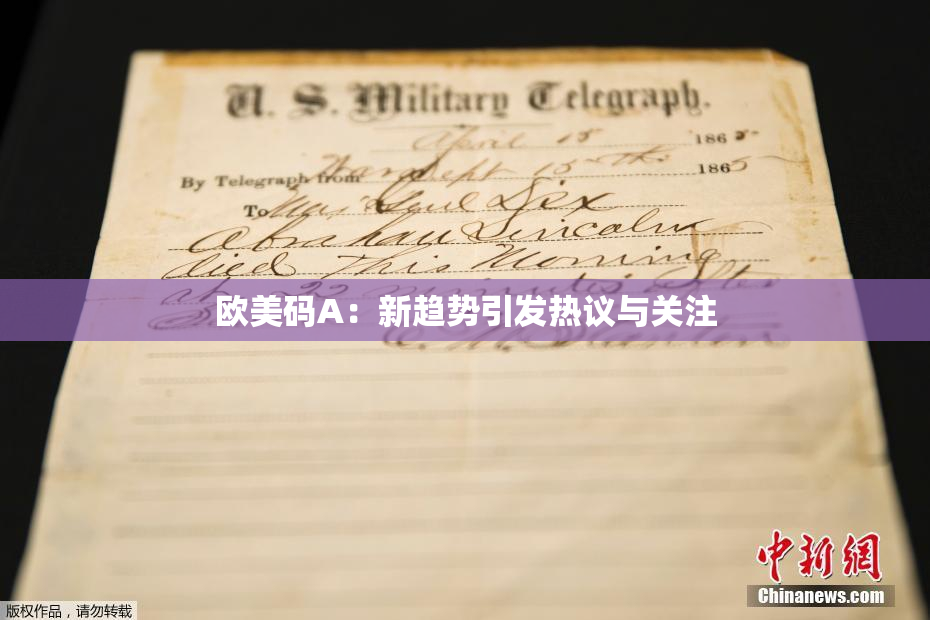 U. S. Military Telegraph.
April 15 1865
By Telegraph from War Dept 15th 1865
To Maj Genl Dix
Abraham Lincoln
died This Morning
at 22 minutes after
欧美码A：新趋势引发热议与关注
E. M. Stanton
中新网
Chinanews.com
版权作品，请勿转载